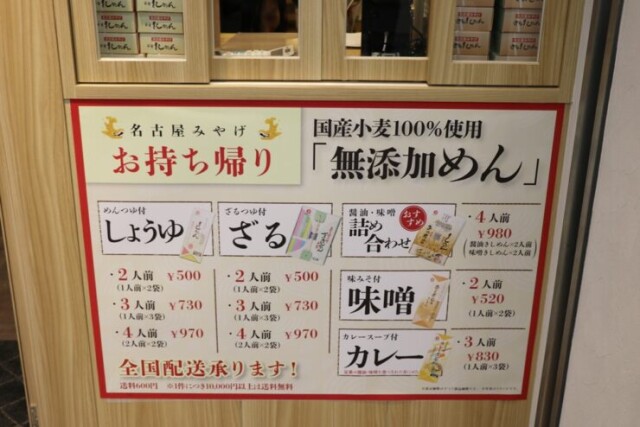 きしめん
きしめん
名古屋みやげ
お持ち帰り
国産小麦100%使用
「無添加めん」
めんつゆ付
しょうゆ
・2人前 ¥500
(1人前×2袋)
・3人前 ¥730
(1人前×3袋)
・4人前 ¥970
(2人前×2袋)
ざるつゆ付
ざる
・2人前 ¥500
(1人前×2袋)
・3人前 ¥730
(1人前×3袋)
・4人前 ¥970
(2人前×2袋)
醤油・味噌
詰め
合わせ
おすすめ
・4人前
¥980
(醤油きしめん×2人前
味噌きしめん×2人前)
味みそ付
味噌
・2人前
¥520
(1人前×2袋)
カレースープ付
カレー
・3人前
¥830
(1人前×3袋)
全国配送承ります!
送料600円 ※1件につき10,000円以上は送料無料